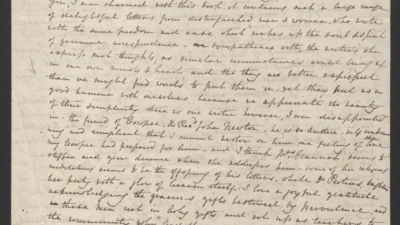 you, I am charmed with this book it contains such a large range
of delightful letters from distinguished men & women, who write
with the same freedom and ease which makes up the
of genuine correspondence - we sympathise with the writers who
express such thoughts, as similar circumstances would bring up
in our own minds & hearts and tho they are better expressed
than we might find words to put them in, yet they put us in
good humour with ourselves because we appreciate the beauty
of their simplicity there is one writer however, I am disappointed
in the friend of Cowper. the Revd John Newton, he is so austere, self
ing and complicated that I cannot bestow on him one feeling of love
my Cowper had prepared for him - and I think Mr seems to
stiffen and grow demure when she addresses him - some of his religious
meditations seems to be the offspring of his letters, while
her piety with a glow of heaven itself. I love a joyful gratitude
acknowledging the generous gifts bestowed by providence, and
those men not in holy gifts and set up as teachers to
the community who